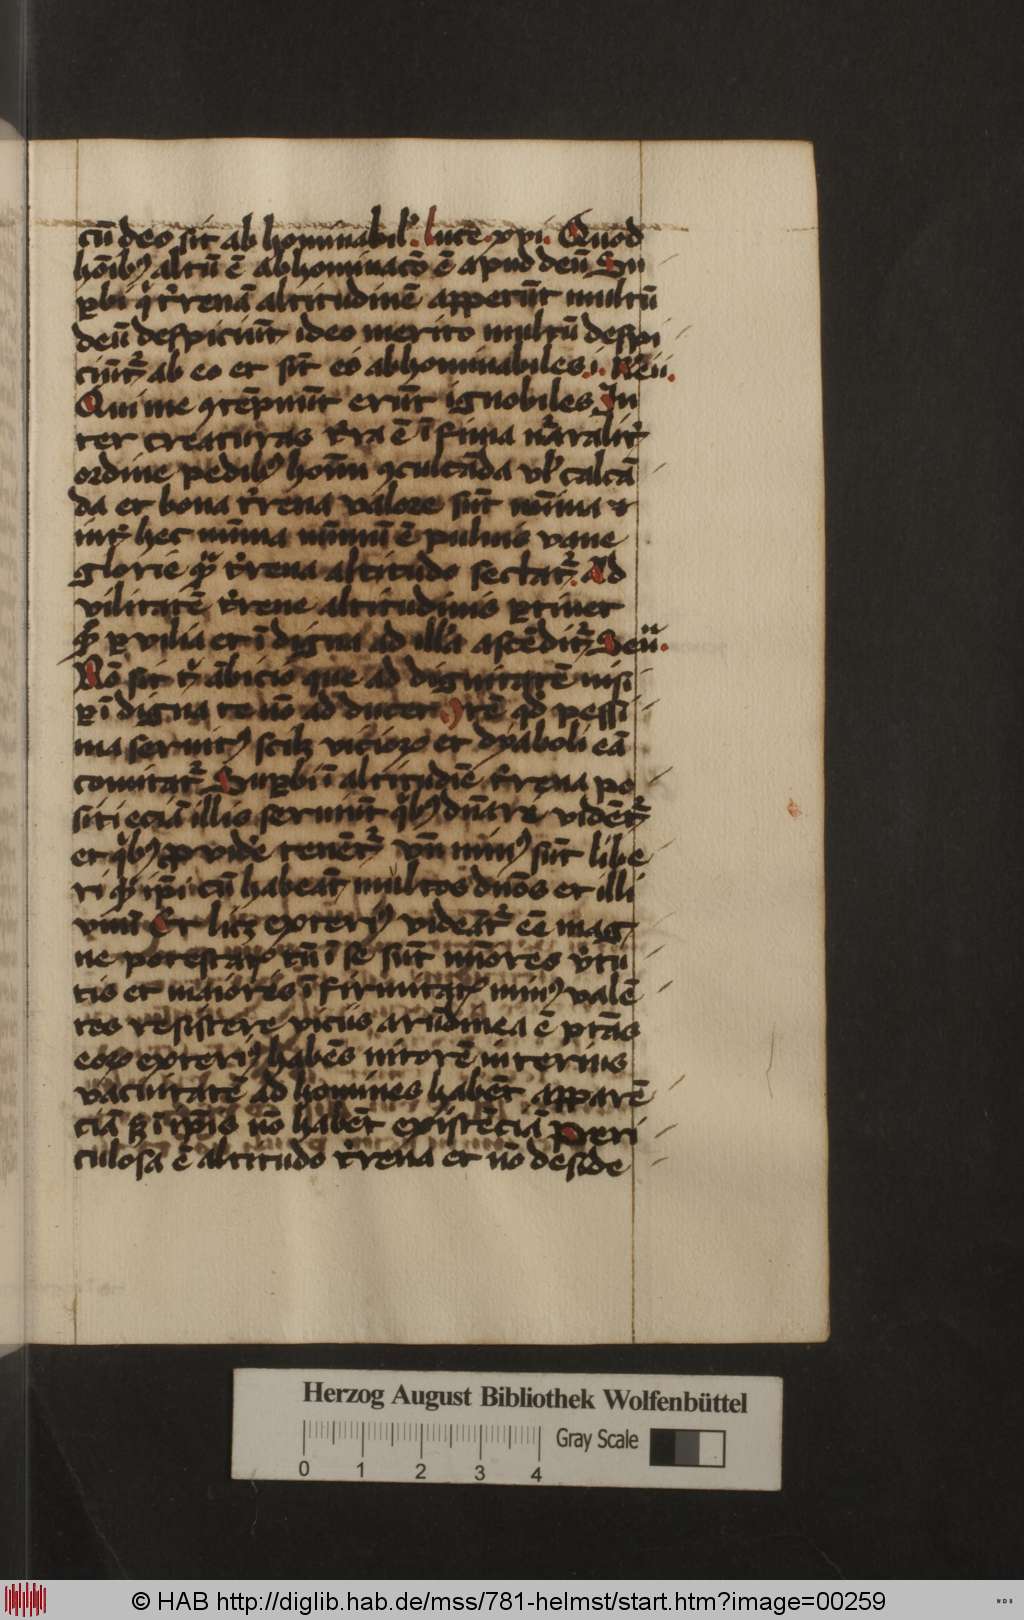 cū deo sit abhominabil᷒. Luce. xvi. Quod
hōibꝰ altū ē abhominacō ē apud deū Su
ꝑbi qͥ t᷒renā altitudinē apperūt multū
deū despiciūt ideo merito multū despi
ciūt᷒ ab eo et sūt eō abhominabiles. i. Re. ii.
Qui me ꝯtēpnūt erūt ignobiles In
ter creaturas t᷒ra ē īfima nāralit᷒
ordine pedibꝰ hoīm ꝯculcāda ul᷒ calcā
da et bona t᷒rena valore sūt mīima et
int᷒ hec mīma mīmū ē puluis vane
glorie qͣ t᷒rena altitudo sectat᷒. Ad
vilitatē t᷒rene altitudinis ꝑtinet
qͩ ꝑ vilia et īdigna ad illā ascēdit᷒ Seⁿͣ.
Nō sit t᷒ ābicio que ad dignitatē nisi
ꝑ īdigna te nō ad ducet Itē qd pessi
ma seruitꝰ scilꝫ vicioꝝ et dyaboli eā
comitat᷒ Suꝑbi ī altitudīe t᷒rena po
siti eciā illis seruiūt qͥbꝰ dn̄ari vidēt᷒
et qͥbꝰ ꝓvide᷒ tenēt᷒ vn̄ minꝰ sūt libe
ri qͣ ip̄i cū habeāt multos dn̄os et illi
vnū Et licꝫ exteriꝰ videāt᷒ eē mag
ne potestatꝭ tn̄ ī se sūt mīores v᷒tu
tis et maioris īfirmitatꝭ minꝰ valē
tes resistere viciis arūdinea ē ptās
eoꝝ exteriꝰ habēs nitorē interius
vacuitatē ad homines habēt apparē
ciā sꝫ ī ip̄is nō habēt existēciā Peri
culosa ē altitudo t᷒rena et nō deside
Herzog August Bibliothek Wolfenbüttel
Gray Scale
0 1 2 3 4
© HAB http://diglib.hab.de/mss/781-helmst/start.htm?image=00259